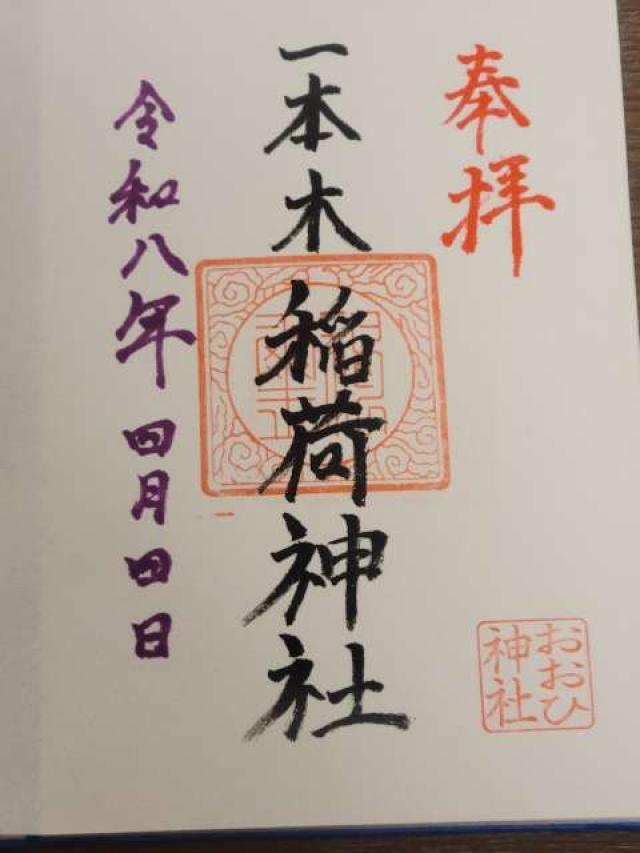 奉拝
一本木稲荷神社
令和八年四月四日
おおひ
神社